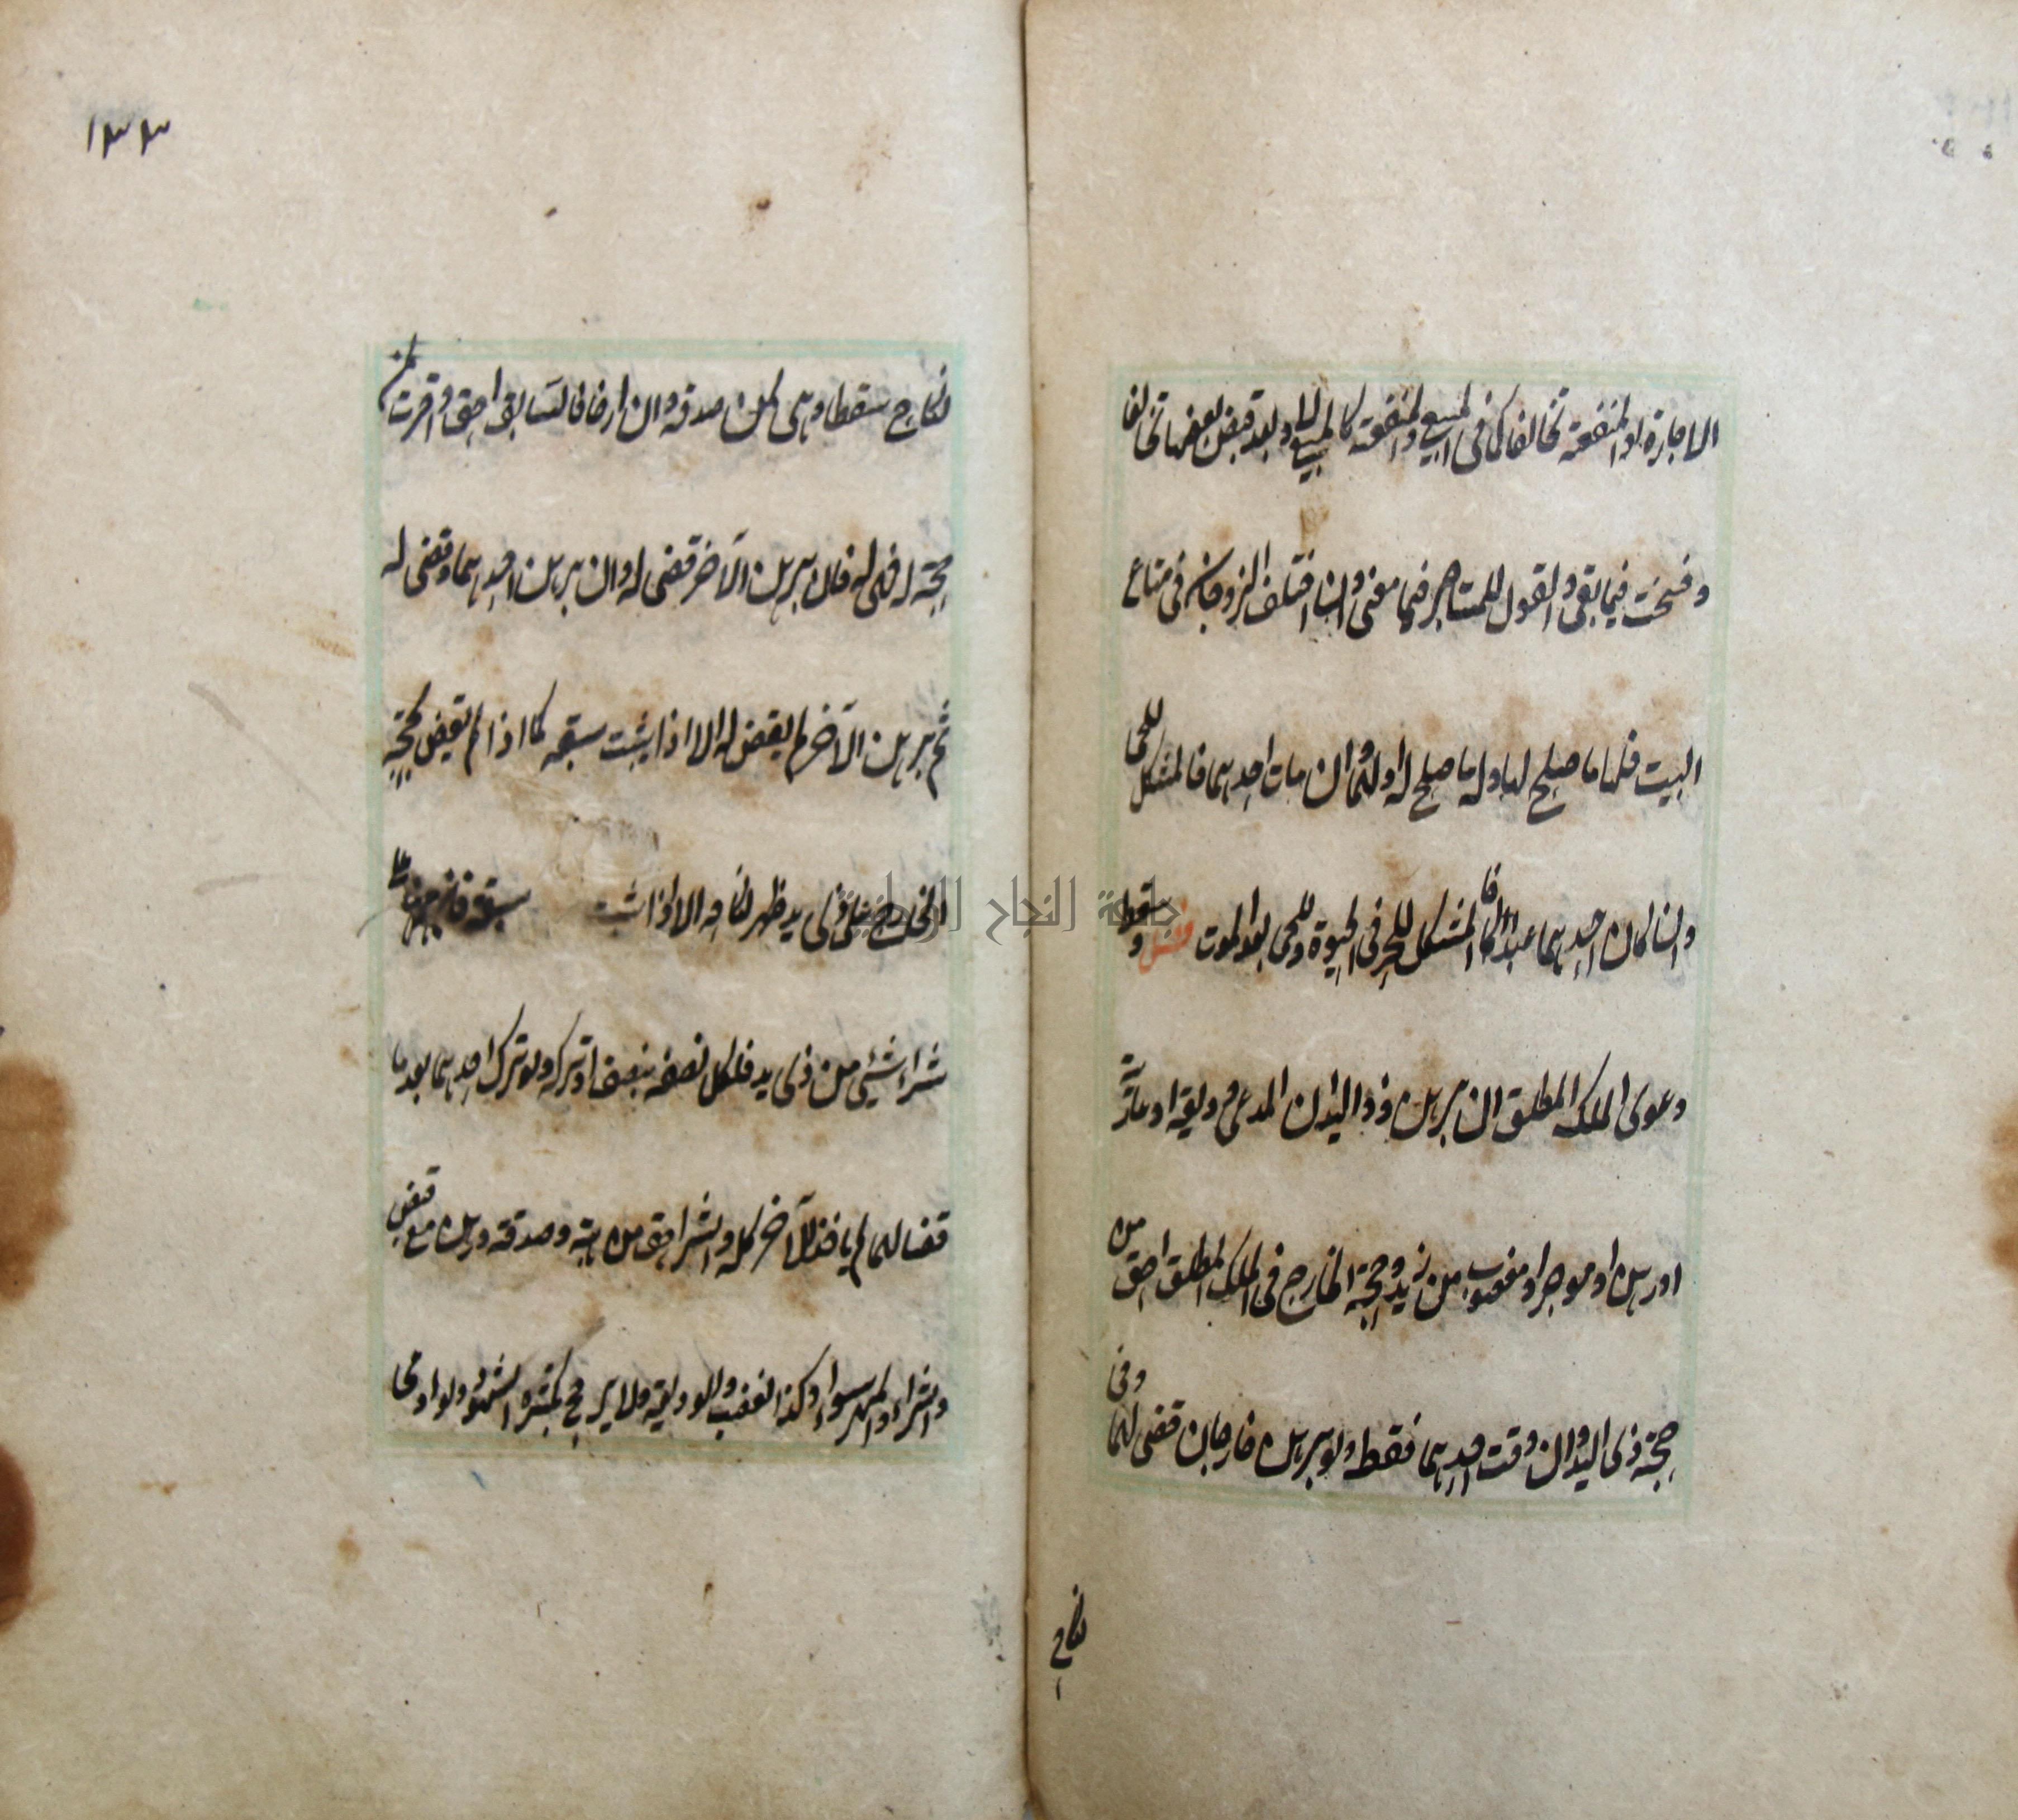 الاجارة او المنفعة تحالفا كما في البيع والمنفعة كالمبيع ولو بعد قبض بعضها تحالفا
وفسخت فيما بقي والقول للمستاجر فيما مضى وان اختلف الزوجان في متاع
البيت فلها ما صلح لها وله ما صلح له او لهما وان مات احدهما فالمشكل للحي
وان كان احدهما عبدا فالمشكل للحر في الحيوة وللحي بعد الموت فصل وسقط
دعوى الملك المطلق ان برهن ذو اليد ان المدعى وديعة او عارية
او رهن او موجر او مغصوب من زيد وحجة الخارج في الملك المطلق احق من
حجة ذي اليد وان وقت احدهما فقط ولو برهن خارجان قضى لهما وفي
نكاح
١٣٣
نكاح سقطا وهي لمن صدقه وان ارخا فالسابق احق واقرت لمن
حجة له فهي له فان برهن الآخر قضى له وان برهن احدهما وقضى له
ثم برهن الآخر لم يقض له الا اذا يثبت سبقه كما اذا لم يقض بحجة
الخارج على ذي يد ظهر نكاحه الا اذا ثبت سبقه فان برهنا على
شراء شيئ من ذي يد فلكل نصفه بنصف او تركه ولو ترك احدهما بعد ما
قضا لهما لم ياخذ الآخر كله والشرا احق من هبة وصدقة ورهن مع قبض
والشراء والمهر سواء وكذا الغصب والوديعة ولا يرجح بكثرة الشهود ولو ادعى